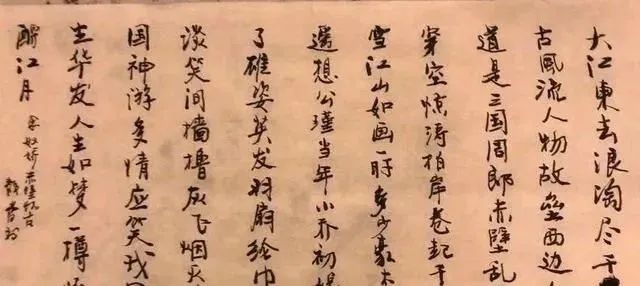 大江東去浪淘尽千
古風流人物故壘西边
道是三国周郎赤壁乱
穿空惊涛拍岸卷起千
雪江山如画一時多少豪
遥想公瑾当年小乔初嫁
了雄姿英发羽扇纶巾
谈笑间樯橹灰飞烟灭
国神游多情应笑我
生华发人生如梦一樽
酹江月
念奴娇赤壁怀古